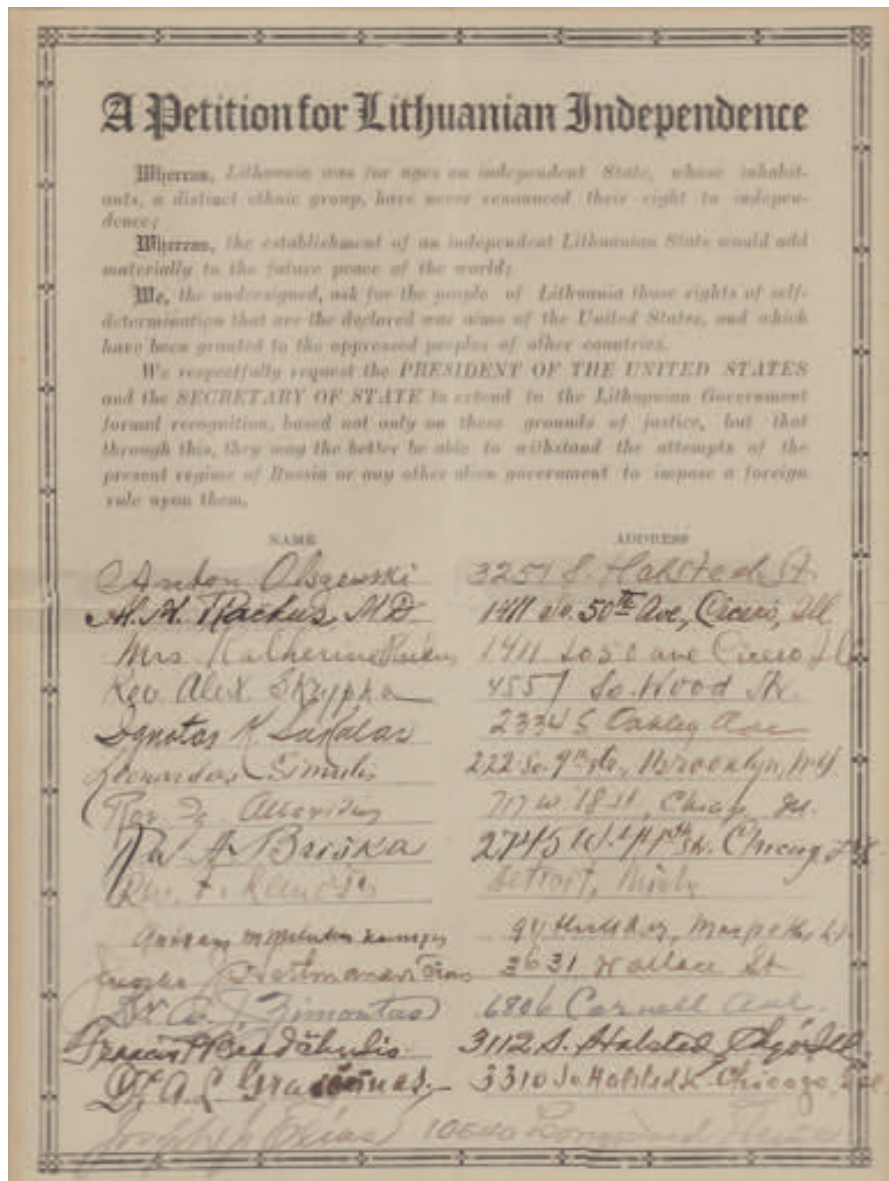 A Petition for Lithuanian Independence
Whereas, Lithuania was for ages an independent State, whose inhabit-
ants, a distinct ethnic group, have never renounced their right to indepen-
dence;
Whereas, the establishment of an independent Lithuanian State would add
materially to the future peace of the world;
We, the undersigned, ask for the people of Lithuania those rights of self-
determination that are the declared war aims of the United States, and which
have been granted to the oppressed peoples of other countries.
We respectfully request the PRESIDENT OF THE UNITED STATES
and the SECRETARY OF STATE to extend to the Lithuanian Government
formal recognition, based not only on these grounds of justice, but that
through this, they may the better be able to withstand the attempts of the
present regime of Russia or any other alien government to impose a foreign
rule upon them.
NAME ADDRESS
Anton Olszewski 3251 S. Halsted St
Rackus, M.D. 1411 So. 50th Ave, Cicero, Ill
Mrs Katherine 1411 So 50 ave Cicero Ill
Rev. Alex. Skrypka 4557 So. Wood St.
Ignotas K. Sakalas S Oakley Ave
Leonardas Simutis 222 So. 9th St., Brooklyn, N.Y.
Rev. 717 W 18 St, Chicago, Ill.
A. Briška W. Chicago
Rev. Detroit, Mich
Maspeth, L.I.
3631 Wallace St
Dr. Zimontas 6806 Cornell Ave.
Francis P. Bradchulis 3112 S. Halsted, Chgo Ill.
Dr. A. L. Graičunas. 3310 So Halsted St. Chicago, Ill.
Joseph J. Elias